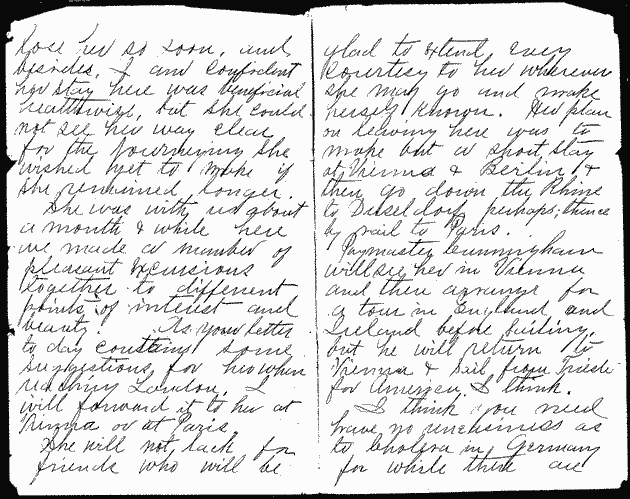 lose her so soon, and
besides, I am confident
her stay here was beneficial
healthwise, but she could
not see her way clear
for the journeying she
wished yet to make if
she remained longer.
She was with us about
a month & while here
we made a number of
pleasant excursions
together to different
points of interest and
beauty. As your letter
to day contains some
suggestions for her when
reaching London, I
will forward it to her at
Vienna or at Paris.
She will not lack for
friends who will be
glad to extend every
courtesy to her wherever
she may go and make
herself known. Her plan
on leaving here was to
make but a short stay
at Vienna & Berlin &
then go down the Rhine
to Dusseldorf, perhaps; thence
by rail to Paris.
Paymaster Cunningham
will see her in Vienna
and then arrange for
a tour in England and
Ireland before sailing,
but he will return to
Vienna & sail from Trieste
for America I think.
I think you need
have no uneasiness as
to cholera in Germany
for while there are